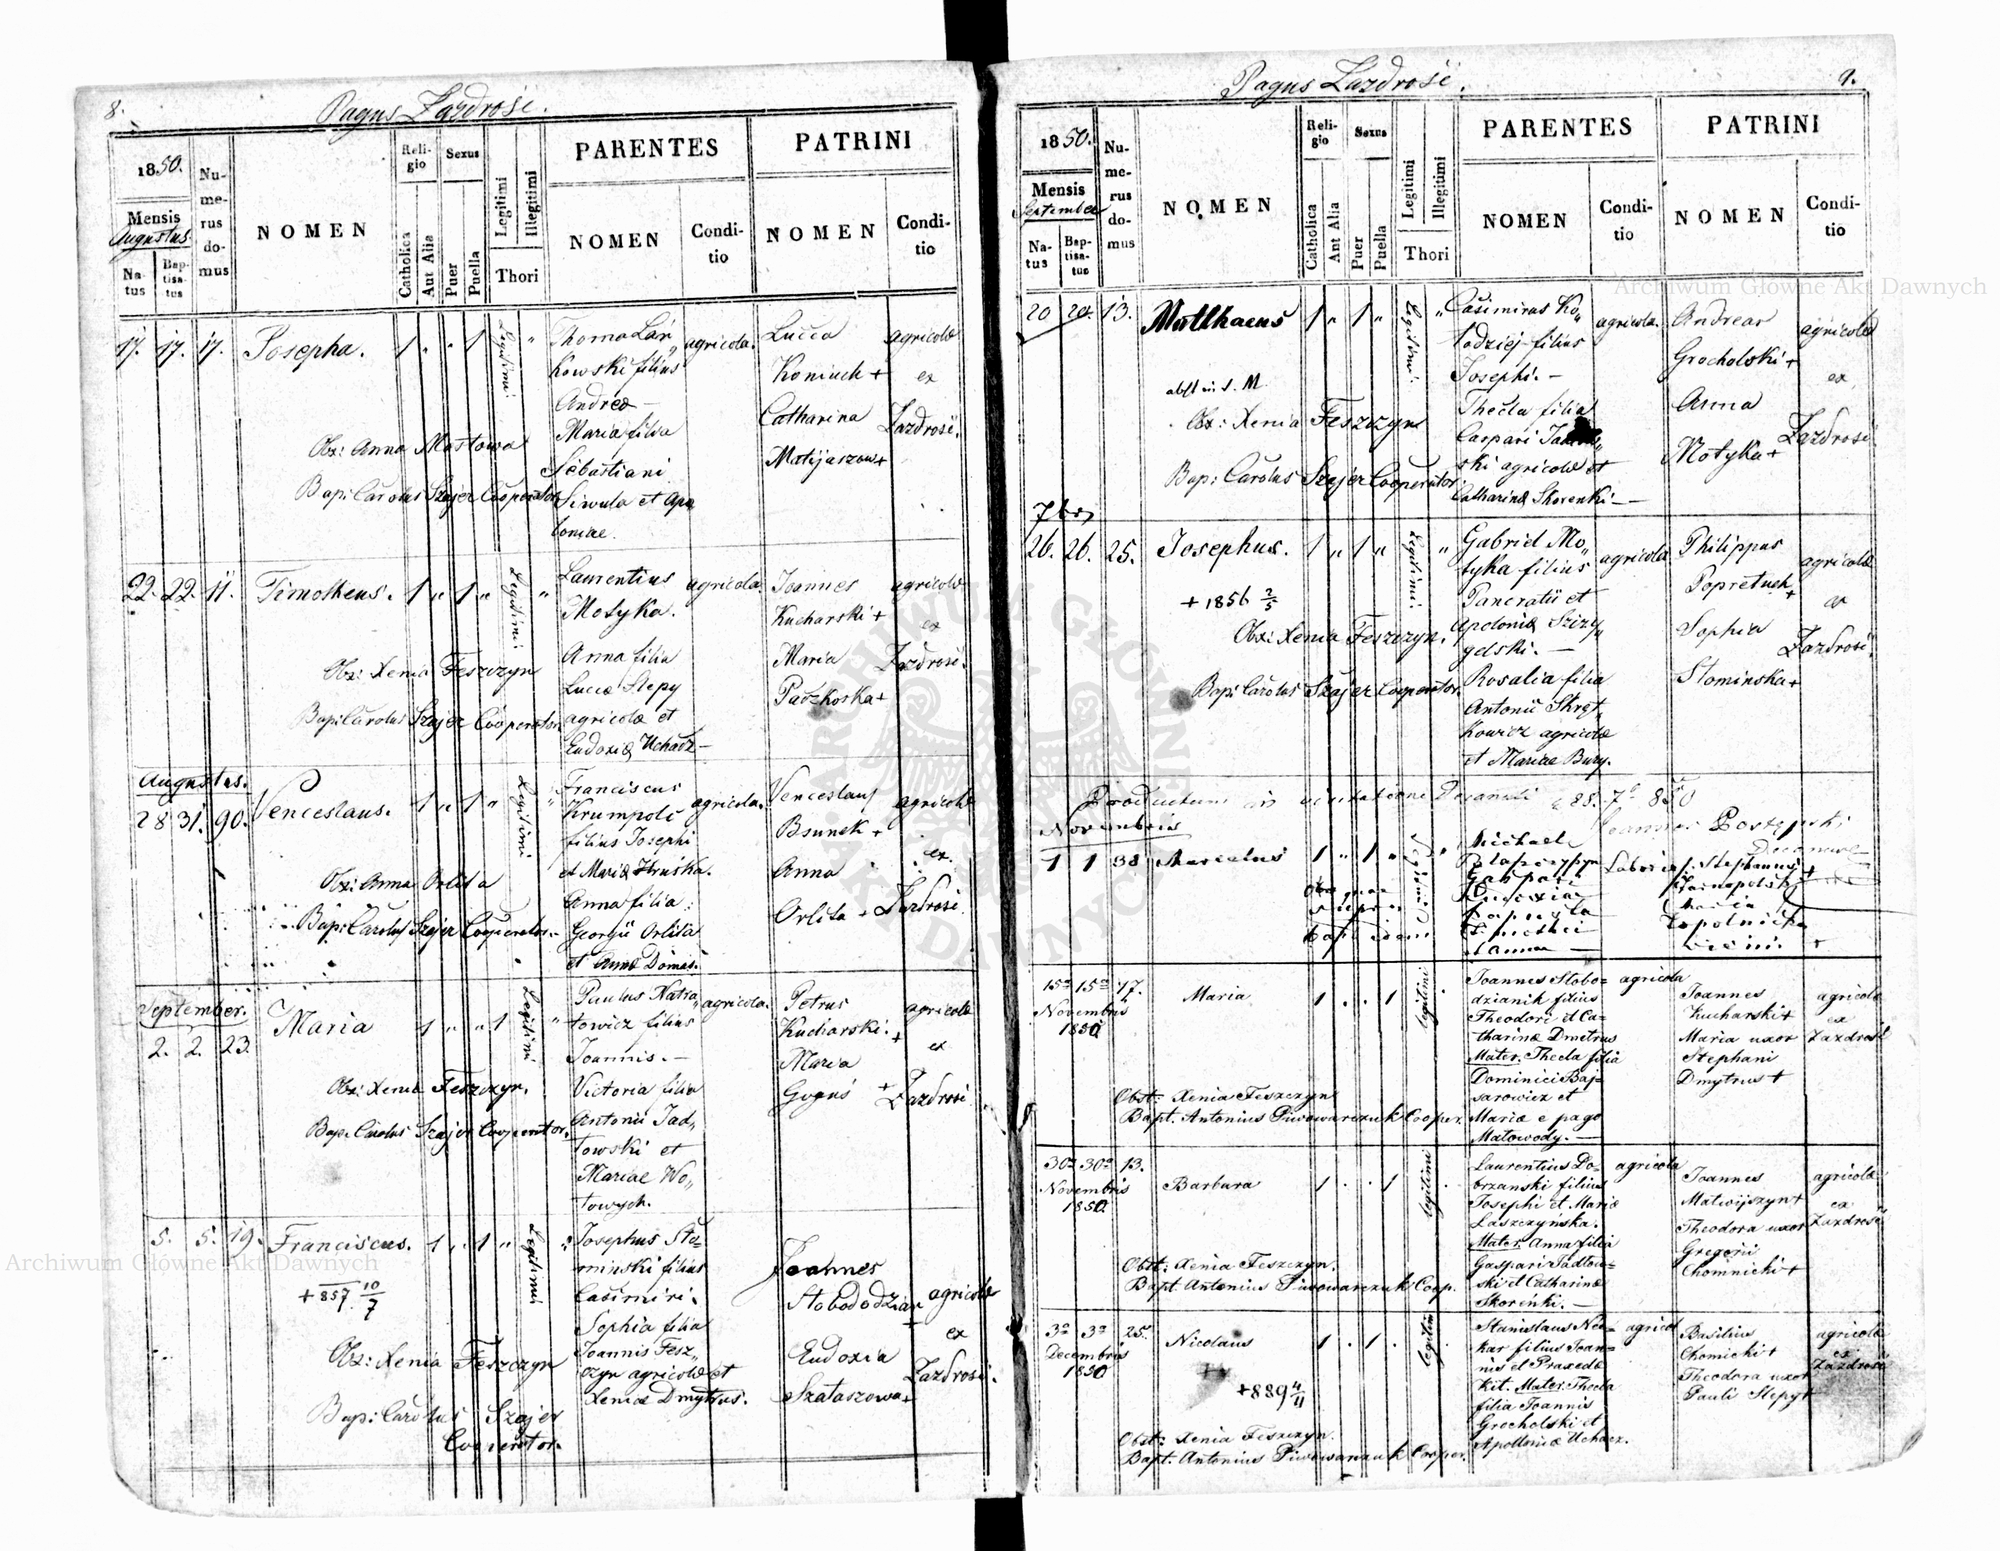 8.
Pagus Zazdrość.
1850.
Mensis
Augustus
Natus
Baptisatus
Numerus domus
NOMEN
Religio
Catholica
Aut Alia
Sexus
Puer
Puella
Legitimi
Illegitimi
Thori
PARENTES
NOMEN
Conditio
PATRINI
NOMEN
Conditio
17. 17. 17. Josepha. 1 " " 1 Legitimi "
Obs: Anna Mostowa
Bap: Carolus Szajer Cooperator
Thoma Lań„
kowski filius
Andreæ —
Maria filia
Sebastiani
Siwula et Apo
loniae.
agricola.
Lucia
Koniuch +
Catharina
Matijaszow +
agricolæ
ex
Zazdrość.
22. 22. 11. Timotheus. 1 " 1 " Legitimi "
Obs: Xenia Feszczyn
Bap: Carolus Szajer Cooperator.
Laurentius
Motyka.
Anna filia
Lucæ Slepy
agricolæ et
Eudoxiæ Uchacz —
agricola.
Joannes
Kucharski +
Maria
Paczkoska +
agricolæ
ex
Zazdrość.
Augustus.
28 31. 90. Venceslaus. 1 " 1 " Legitimi "
Obs: Anna Orlita
Bap: Carolus Szajer Cooperator.
Franciscus
Krumpolc
filius Josephi
et Mariæ Hruska.
Anna filia
Georgii Orlita
et Annæ Domas.
agricola.
Venceslaus
Bsunek +
Anna
Orlita +
agricolæ
ex
Zazdrość.
September.
2. 2. 23. Maria 1 " " 1 Legitimi "
Obs: Xenia Feszczyn.
Bap: Carolus Szajer Cooperator.
Paulus Natra„
towicz filius
Joannis. —
Victoria filia
Antonii Jad„
łowski et
Mariae Wo„
towych.
agricola.
Petrus
Kuciarski. +
Maria
+
agricolæ
ex
Zazdrość
5. 5. 19. Franciscus. 1 " 1 " Legitimi "
+ 857 10/7
Obs: Xenia Feszczyn
Bap: Carolus Szajer
Cooperator.
Josephus Sło=
miński filius
Casimiri.
Sophia filia
Joannis Fesz„
czyn agricolæ et
Xeniæ Dmytrus.
Joannes
Słobodzian +
Eudoxia
Szataszowa +
agricolæ
ex
Zazdrość.
Pagus Zazdrość.
9.
1850.
Mensis
September
Natus
Baptisatus
Numerus domus
NOMEN
Religio
Catholica
Aut Alia
Sexus
Puer
Puella
Legitimi
Illegitimi
Thori
PARENTES
NOMEN
Conditio
PATRINI
NOMEN
Conditio
20 20. 13. Matthaeus 1 " 1 " Legitimi "
Obs: Xenia Feszczyn
Bap: Carolus Szajer Cooperator
Casimirus Ko„
łodziej filius
Josephi. —
Thecla filia
Caspari
ski agricolæ et
Catharinæ Skorenki —
agricola.
Andreas
Grocholski +
Anna
Motyka +
agricolæ
ex
Zazdrość
7br
26. 26. 25. Josephus. 1 " 1 " Legitimi "
+ 1856 2/5
Obs: Xenia Feszczyn.
Bap: Carolus Szajer Cooperator.
Gabriel Mo„
tyka filius
Pancratii et
Apoloniæ Szizy„
gelski. —
Rosalia filia
Antonii Skręt„
kowicz agricolæ
et Mariae Bury.
agricola
Philippus
Popretuch +
Sophia
Słominska +
agricolæ
ex
Zazdrość.
Productum in visitatione Decanali
Joannes Postępski
Novembris
1 1 38 1 " 1 " "
Michael
Gaspari
Eudoxia
Laborios
Stephanus
Tarnopolski +
Maria
15a 15a 17. Maria 1 . . 1 legitimi
Novembris
1850
Obst: Xenia Feszczyn
Bapt. Antonius Piwowarczuk Cooper.
Joannes Słobo=
dzianik filius
Theodori et Ca=
tharinæ Dmetrus
Mater. Thecla filia
Dominici Baj=
sarowicz et
Mariæ e pago
Małowody. —
agricola
Joannes
Kucharski +
Maria uxor
Stephani
Dmytrus +
agricolæ
ex
Zazdrość
30a 30a 13. Barbara 1 . . 1 legitimi .
Novembris
1850.
Obst: Xenia Feszczyn.
Bapt. Antonius Piwowarczuk Coop.
Laurentius Do=
brzanski filius
Josephi et Mariæ
Łaszczyńska.
Mater. Anna filia
Gaspari Jadłow=
ski et Catharinæ
Skorenki. —
agricola
Joannes
Matwijszyn +
Theodora uxor
Gregorii
Chomnicki +
agricolæ
ex
Zazdrość
3a 3a 25. Nicolaus 1 . 1 . legitimi
Decembris
1850
+ 889 4/4
Obst: Xenia Feszczyn.
Bapt. Antonius Piwowarczuk Cooper.
Stanislaus Nie=
kar filius Joan=
nis et Praxedæ
kit. Mater. Thecla
filia Joannis
Grocholski et
Apolloniæ Uchacz.
agricol
Basilius
Chomicki +
Theodora uxor
Pauli Slepy +
agricolæ
ex
Zazdrość
Archiwum Główne Akt Dawnych
Archiwum Główne Akt Dawnych
ARCHIWUM GŁÓWNE AKT DAWNYCH